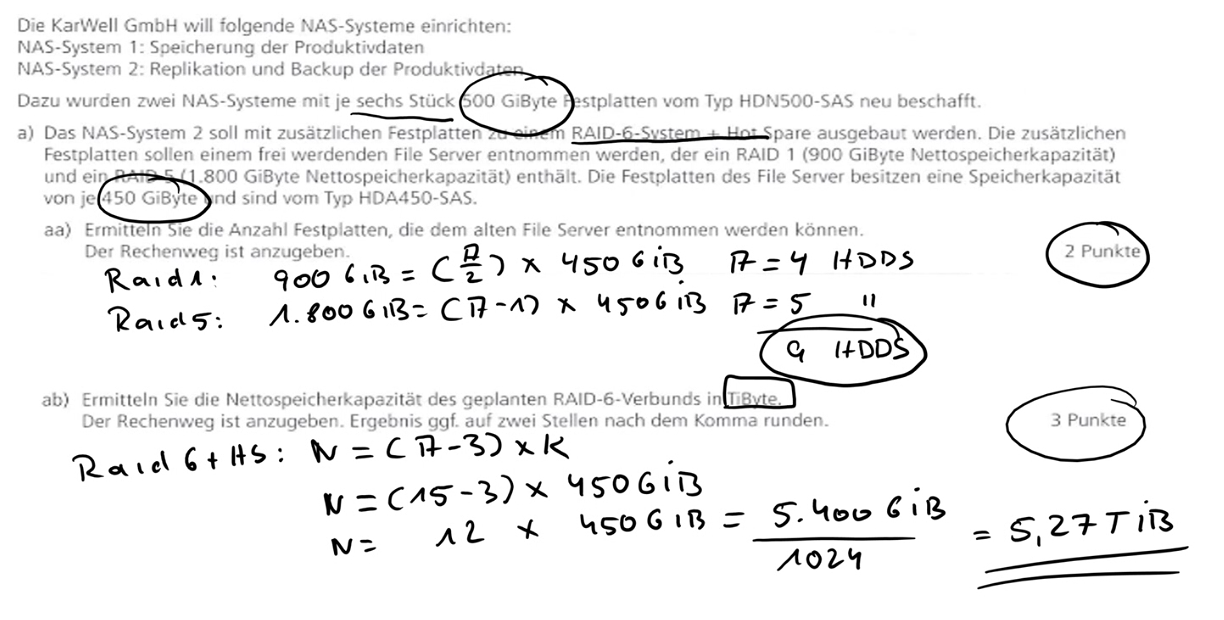 Die KarWell GmbH will folgende NAS-Systeme einrichten:
NAS-System 1: Speicherung der Produktivdaten
NAS-System 2: Replikation und Backup der Produktivdaten
Dazu wurden zwei NAS-Systeme mit je sechs Stück 500 GiByte Festplatten vom Typ HDN500-SAS neu beschafft.
a) Das NAS-System 2 soll mit zusätzlichen Festplatten zu einem RAID-6-System + Hot Spare ausgebaut werden. Die zusätzlichen
Festplatten sollen einem frei werdenden File Server entnommen werden, der ein RAID 1 (900 GiByte Nettospeicherkapazität)
und ein RAID 5 (1.800 GiByte Nettospeicherkapazität) enthält. Die Festplatten des File Server besitzen eine Speicherkapazität
von je 450 GiByte und sind vom Typ HDA450-SAS.
aa) Ermitteln Sie die Anzahl Festplatten, die dem alten File Server entnommen werden können.
Der Rechenweg ist anzugeben. 2 Punkte
Raid1: 900 GiB = (A/2) × 450 GiB A = 4 HDDS
Raid5: 1.800 GiB = (A-1) × 450 GiB A = 5 "
9 HDDS
ab) Ermitteln Sie die Nettospeicherkapazität des geplanten RAID-6-Verbunds in TiByte.
Der Rechenweg ist anzugeben. Ergebnis ggf. auf zwei Stellen nach dem Komma runden. 3 Punkte
Raid 6 + HS: N = (A-3) × K
N = (15-3) × 450 GiB
N = 12 × 450 GiB = 5.400 GiB / 1024 = 5,27 TiB